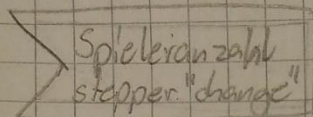 Spieleranzahl
stepper "change"